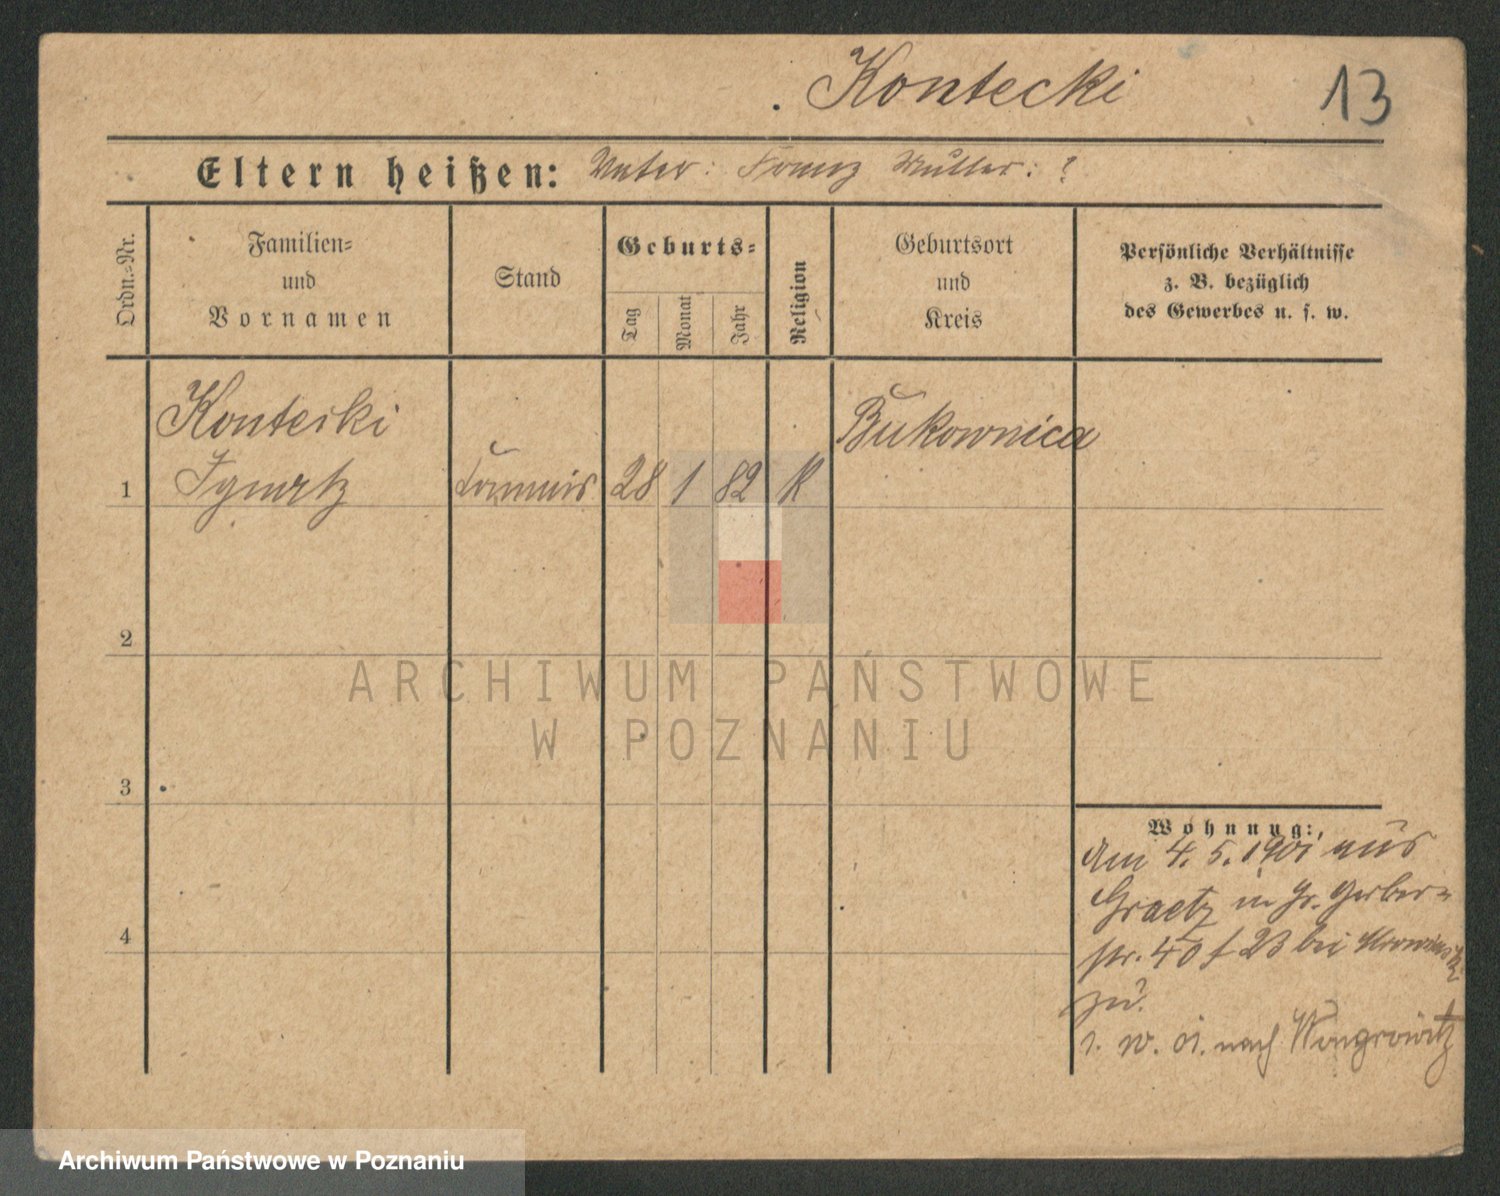 Kontecki
13
Eltern heißen: Vater: Franz Mutter: ?
Ordn.-Nr.
Familien-
und
Vornamen
Stand
Geburts-
Tag
Monat
Jahr
Religion
Geburtsort
und
Kreis
Persönliche Verhältnisse
z. B. bezüglich
des Gewerbes u. s. w.
Kontecki
Bukownica
1 Ignatz Commis 28 1 82 K
2
ARCHIWUM PAŃSTWOWE
W POZNANIU
3
Wohnung:
Am 4. 5. 1901 aus
Graetz in Gr. Gerber=
str. 40 f 23 bei
zu.
1. 10. 01. nach Wongrowitz
4
Archiwum Państwowe w Poznaniu